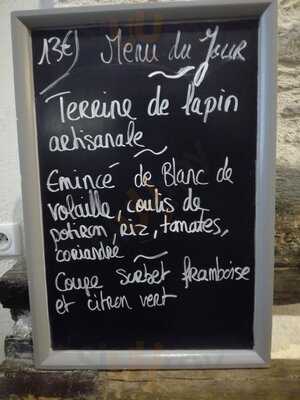 13€ Menu du Jour
Terrine de lapin
artisanale
Emincé de Blanc de
volaille, coulis de
potiron, riz, tomates,
coriandre
Coupe sorbet framboise
et citron vert